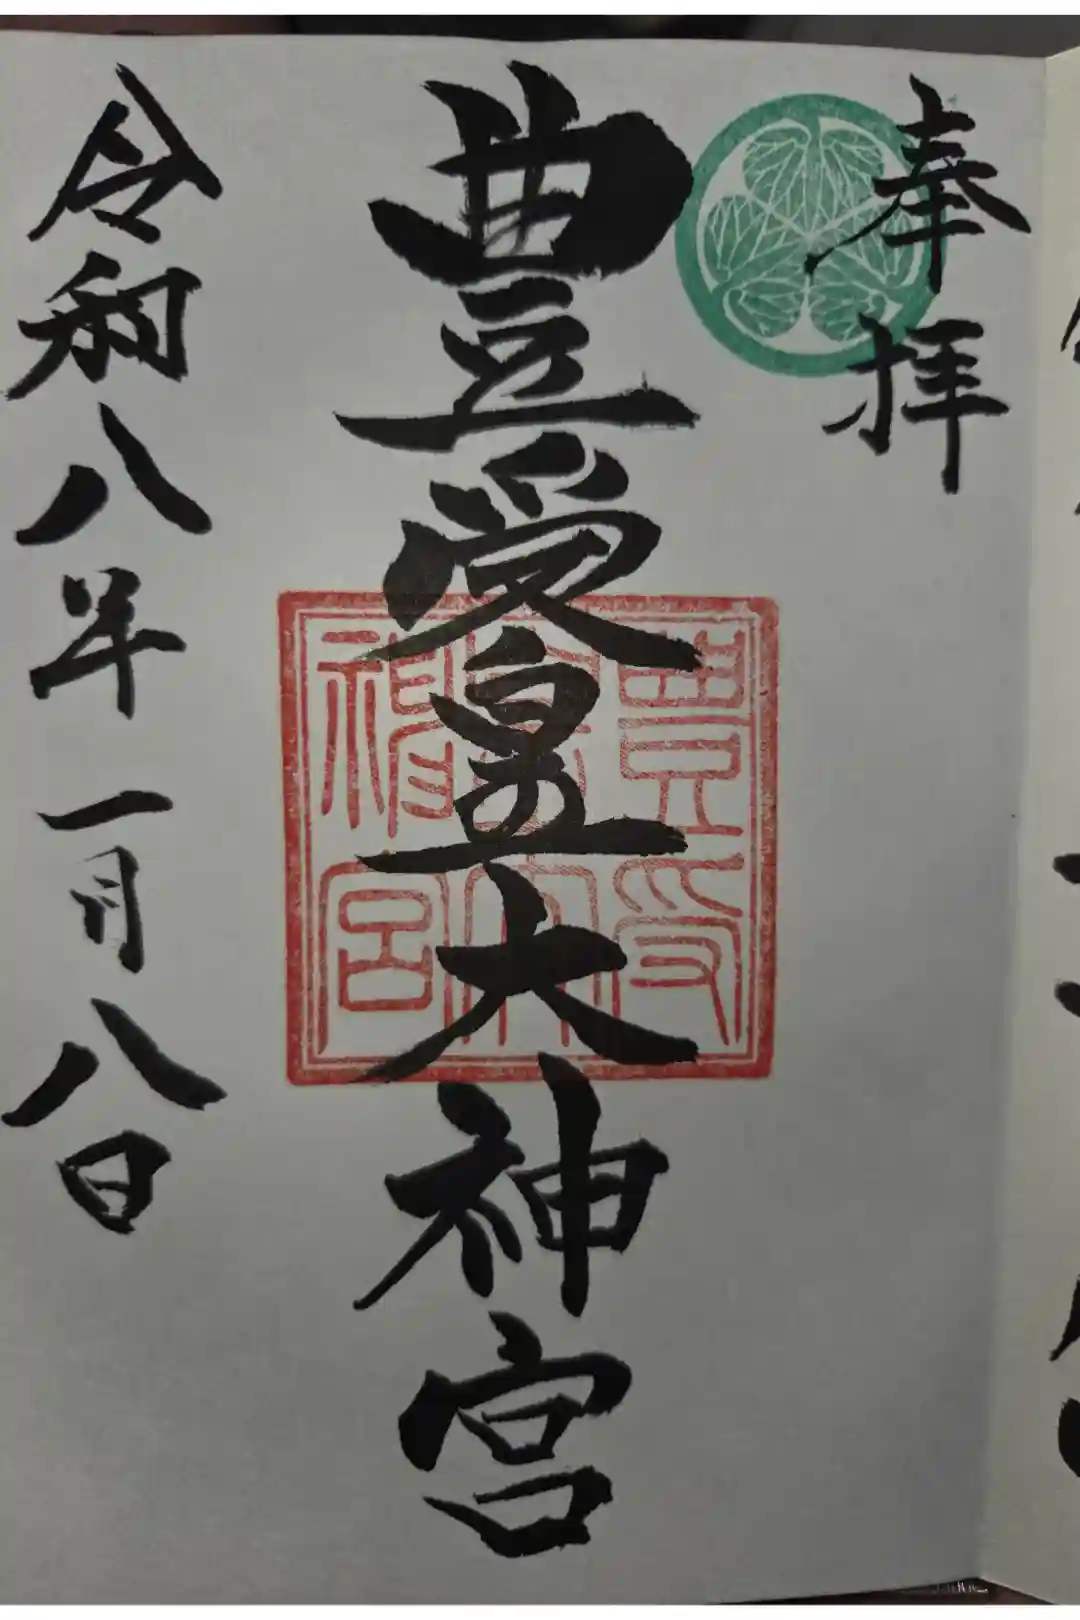 奉拝
豊受皇大神宮
豊受皇大神宮
令和八年一月八日